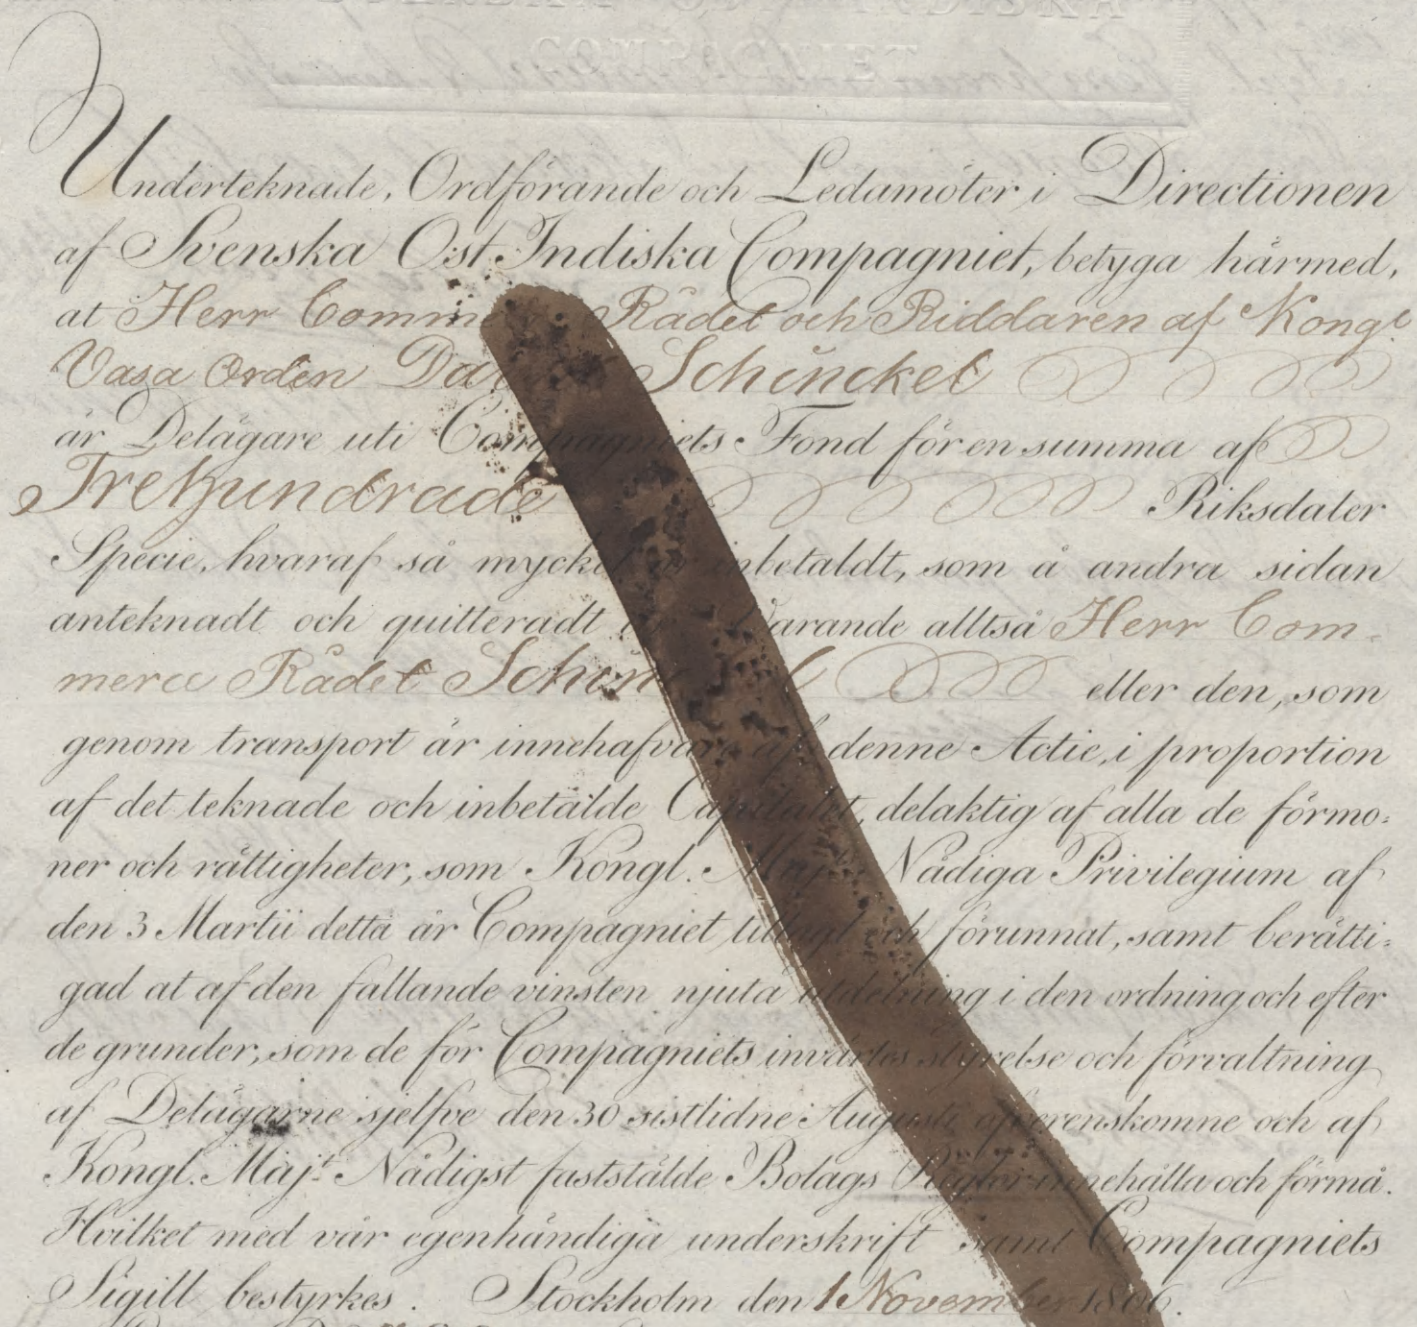 COMPAGNIET
Underteknade, Ordförande och Ledamöter i Directionen
af Svenska Ost Indiska Compagniet, betyga härmed,
at Herr Comm Rådet och Riddaren af Kongl.
Vasa Orden Da Schinckel
är Delägare uti Compagniets Fond för en summa af
Trehundrade Riksdaler
Specie, hvaraf så mycket är inbetaldt, som å andra sidan
anteknadt och quitteradt Varande alltså Herr Com-
merce Rådet Schin l eller den, som
genom transport är innehafvare af denne Actie, i proportion
af det teknade och inbetalde Capitalet, delaktig af alla de förmo:
ner och rättigheter, som Kongl. Maj:ts Nådiga Privilegium af
den 3 Martii detta år Compagniet tillagt och förunnat, samt berätti:
gad at af den fallande vinsten njuta utdelning i den ordning och efter
de grunder, som de för Compagniets invärtes styrelse och förvaltning
af Delägarne sjelfve den 30 sistlidne Augusti öfverenskomne och af
Kongl. Maj:t Nådigst fastställde Bolags Reglor innehålla och förmå.
Hvilket med vår egenhändiga underskrift samt Compagniets
Sigill bestyrkes. Stockholm den 1 November 1806.